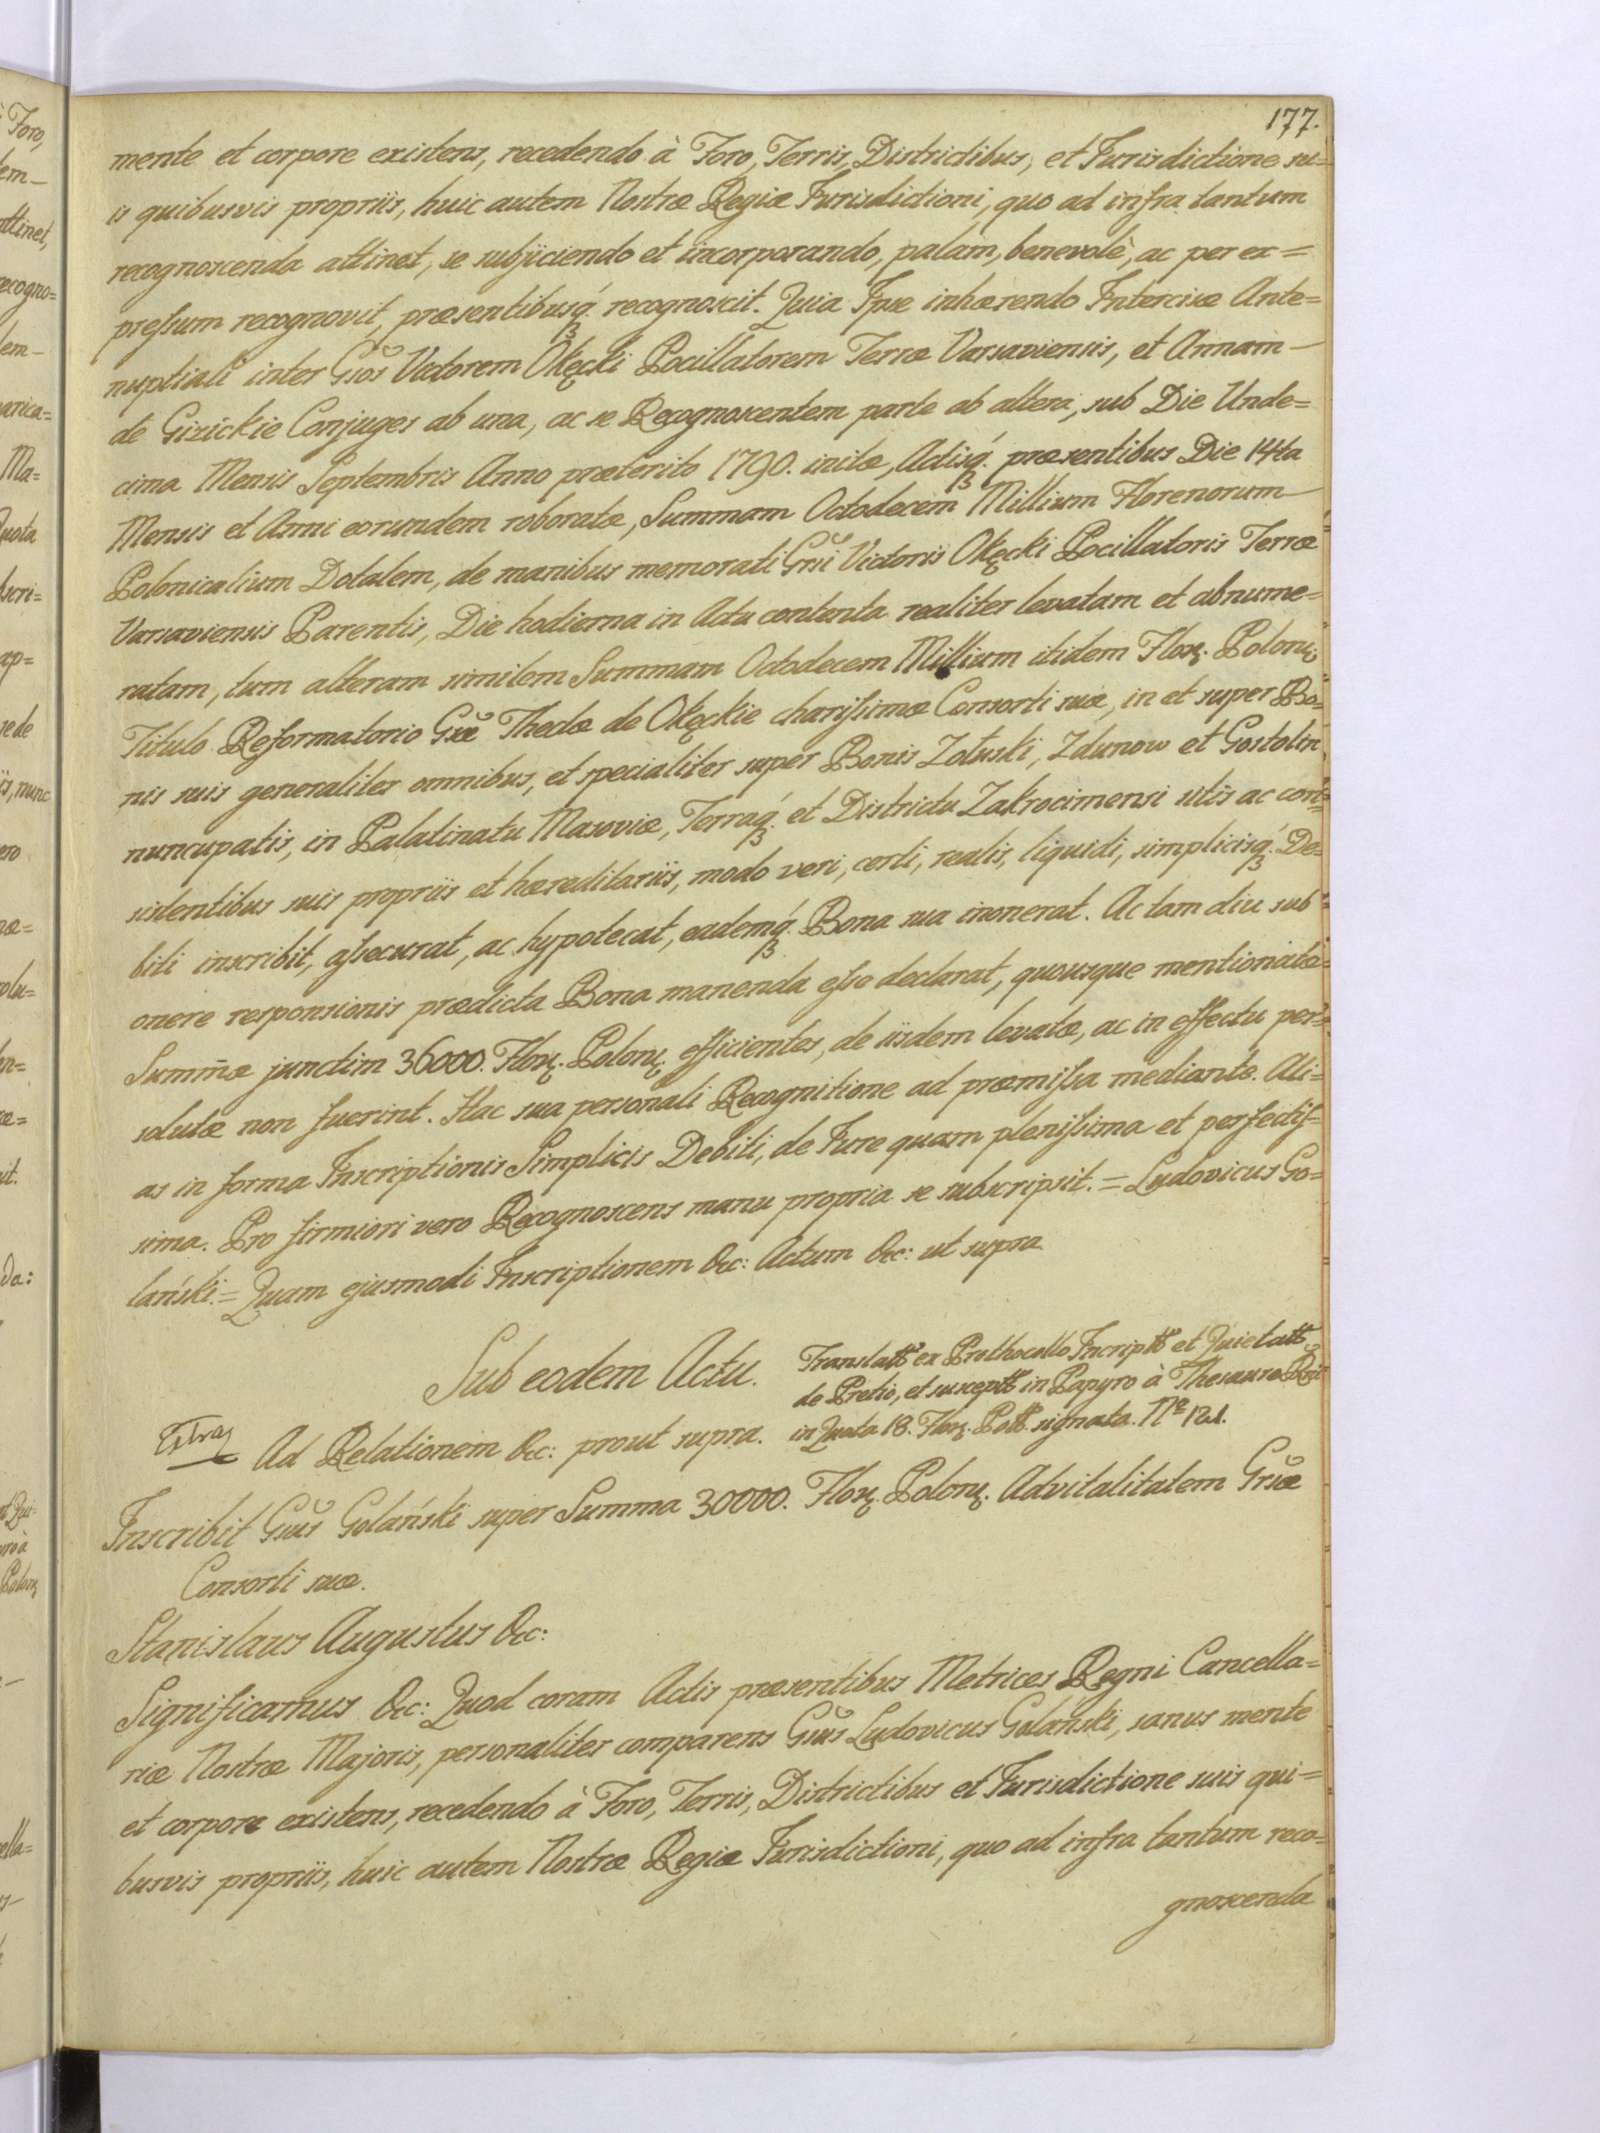 177.
mente et corpore existens, recedendo à Foro, Terris, Districtibus, et Jurisdictione su=
is quibusvis propriis, huic autem Nostræ Regiæ Jurisdictioni, quo ad infra tantum
recognoscenda attinet, se subjiciendo et incorporando, palam, benevolè, ac per ex=
preſsum recognovit, præsentibusq́ꝫ recognoscit. Quia Ipse inhærendo Intercisæ Ante=
nuptiali inter Gsōs Victorem Okęcki Pocillatorem Terræ Varsaviensis, et Annam
de Gizickie Conjuges ab una, ac se Recognoscentem parte ab altera, sub Die Unde=
cima Mensis Septembris Anno præterito 1790. initæ, Actisq́ꝫ præsentibus Die 14ta
Mensis et Anni eorundem roboratæ, Summam Octodecem Millium Florenorum
Polonicalium Dotalem, de manibus memorati Gsi Victoris Okęcki Pocillatoris Terræ
Varsaviensis Parentis, Die hodierna in Actu contenta realiter levatam et abnume=
ratam, tum alteram similem Summam Octodecem Millium itidem Floꝝ. Poloꝝ.
Titulo Reformatorio Gsæ Theclæ de Okęckie chariſsimæ Consorti suæ, in et super Bo=
nis suis generaliter omnibus, et specialiter super Bonis Zołuski, Zdunow et Gostolin
nuncupatis, in Palatinatu Masoviæ, Terraq́ꝫ et Districtu Zakrocimensi sitis ac con=
sistentibus suis propriis et hæreditariis, modo veri, certi, realis, liquidi, simplicisq́ꝫ De=
biti inscribit, aſsecurat, ac hypotecat, eademq́ꝫ Bona sua inonerat. Ac tam diu sub
onere responsionis prædicta Bona manenda eſse declarat, quousque mentionatæ
Sum̃æ junctim 36000. Floꝝ. Poloꝝ. efficientes, de iisdem levatæ, ac in effectu per=
solutæ non fuerint. Hac sua personali Recognitione ad præmiſsa mediante. Ali=
as in forma Inscriptionis Simplicis Debiti, de Jure quam pleniſsima et perfectiſ=
sima. Pro firmiori vero Recognoscens manu propria se subscripsit. = Ludovicus Go=
lański. = Quam ejusmodi Inscriptionem &c: Actum &c: ut supra
Sub eodem Actu.
in Quota 18. Floꝝ. signata. No 121.
Ad Relationem &c: prout supra.
Inscribit Gsūs Golański super Summa 30000. Floꝝ. Poloꝝ. Advitalitatem Gsæ
Consorti suæ.
Stanislaus Augustus &c:
Significamus &c: Quod coram Actis præsentibus Metrices Regni Cancella=
riæ Nostræ Majoris, personaliter comparens Gsūs Ludovicus Golański, sanus mente
et corpore existens, recedendo à Foro, Terris, Districtibus et Jurisdictione suis qui=
busvis propriis, huic autem Nostræ Regiæ Jurisdictioni, quo ad infra tantum reco=
gnoscenda